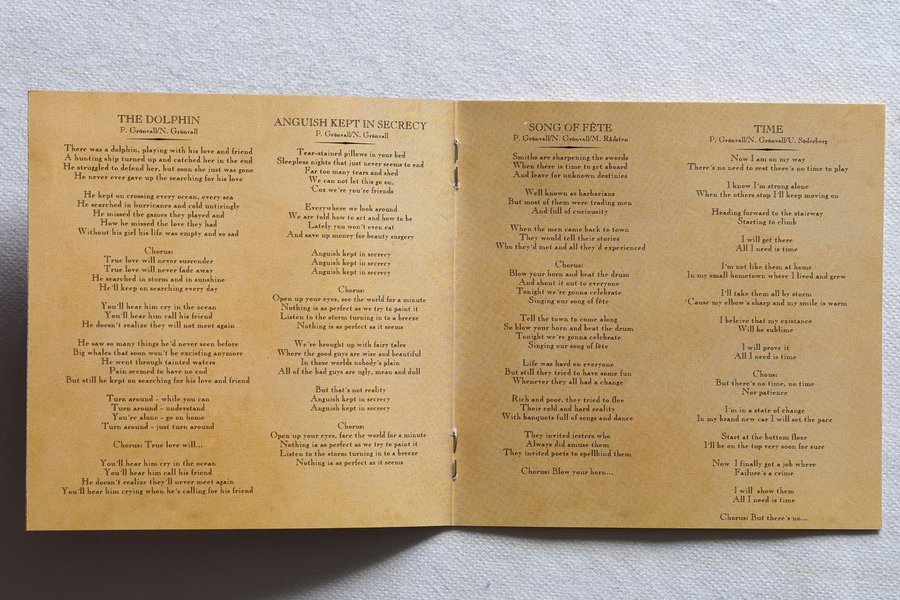 THE DOLPHIN
P. Grönvall/N. Grönvall
There was a dolphin, playing with his love and friend
A hunting ship turned up and catched her in the end
He struggled to defend her, but soon she just was gone
He never ever gave up the searching for his love
He kept on crossing every ocean, every sea
He searched in hurricanes and cold untiringly
He missed the games they played and
How he missed the love they had
Without his girl his life was empty and so sad
Chorus:
True love will never surrender
True love will never fade away
He searched in storm and in sunshine
He'll keep on searching every day
You'll hear him cry in the ocean
You'll hear him call his friend
He doesn't realize they will not meet again
He saw so many things he'd never seen before
Big whales that soon won't be excisting anymore
He went through tainted waters
Pain seemed to have no end
But still he kept on searching for his love and friend
Turn around - while you can
Turn around - understand
You're alone - go on home
Turn around - just turn around
Chorus: True love will...
You'll hear him cry in the ocean
You'll hear him call his friend
He doesn't realize they'll never meet again
You'll hear him crying when he's calling for his friend
ANGUISH KEPT IN SECRECY
P. Grönvall/N. Grönvall
Tear-stained pillows in your bed
Sleepless nights that just never seems to end
Far too many tears and shed
We can not let this go on,
'Coz we're you're friends
Everywhere we look around
We are told how to act and how to be
Lately you won't even eat
And save up money for beauty surgery
Anguish kept in secrecy
Anguish kept in secrecy
Anguish kept in secrecy
Chorus:
Open up your eyes, see the world for a minute
Nothing is as perfect as we try to paint it
Listen to the storm turning in to a breeze
Nothing is as perfect as it seems
We're brought up with fairy tales
Where the good guys are wise and beautiful
In those worlds nobody's plain
All of the bad guys are ugly, mean and dull
But that's not reality
Anguish kept in secrecy
Anguish kept in secrecy
Chorus:
Open up your eyes, face the world for a minute
Nothing is as perfect as we try to paint it
Listen to the storm turning in to a breeze
Nothing is as perfect as it seems
SONG OF FÊTE
P. Grönvall/N. Grönvall/M. Rådsten
Smiths are sharpening the swords
When there is time to get aboard
And leave for unknown destinies
Well known as barbarians
But most of them were trading men
And full of curiousity
When the men came back to town
They would tell their stories
Who they'd met and all they'd experienced
Chorus:
Blow your horn and beat the drum
And shout it out to everyone
Tonight we're gonna celebrate
Singing our song of fête
Tell the town to come along
So blow your horn and beat the drum
Tonight we're gonna celebrate
Singing our song of fête
Life was hard on everyone
But still they tried to have some fun
Whenever they all had a change
Rich and poor, they tried to flee
Their cold and hard reality
With banquets full of songs and dance
They invited jesters who
Always did amuse them
They invited poets to spellbind them
Chorus: Blow your horn...
TIME
P. Grönvall/N. Grönvall/U. Söderberg
Now I am on my way
There's no need to rest there's no time to play
I know I'm strong alone
When the others stop I'll keep moving on
Heading forward to the stairway
Starting to climb
I will get there
All I need is time
I'm not like them at home
In my small hometown where I lived and grew
I'll take them all by storm
'Cause my elbow's sharp and my smile is warm
I beleive that my existance
Will be sublime
I will prove it
All I need is time
Cheus:
But there's no time, no time
Nor patience
I'm in a state of change
In my brand new car I will set the pace
Start at the bottom floor
I'll be on the top very soon for sure
Now I finally got a job where
Failure's a crime
I will show them
All I need is time
Chorus: But there's no...